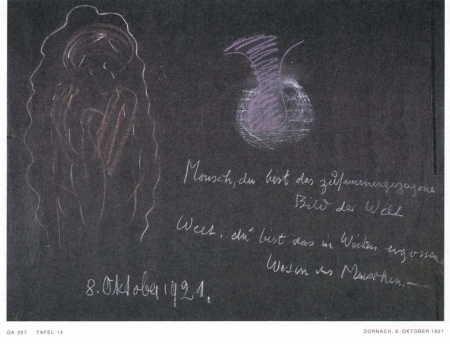 Mensch, du bist das zusammengezogene
Bild der Welt
Welt, du bist das in Weiten ergossene
Wesen des Menschen. —
8. Oktober 1921.
GA 207 TAFEL 14
DORNACH, 8. OKTOBER 1921